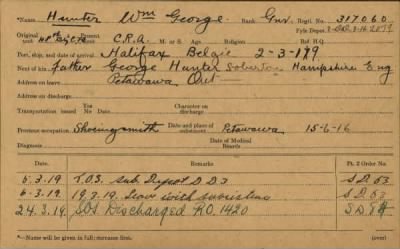 Name* Hunter Wm George. Rank Gnr. Regtl. No. 317060
Original unit C.R.A. M. or S. Age Religion Ref. H.Q.
Port, ship, and date of arrival Halifax Belgic 2-3-19
Next of kin father George Hunter Soberton Hampshire Eng
Address on leave Petawawa Ont
Address on discharge
Transportation issued Yes No Character on discharge
Previous occupation Shoeingsmith Date and place of substance Petawawa 15-6-16
Diagnosis Date of Medical Boards
Date Remarks Pt. 2 Order No.
5.3.19 T.O.S. Sub Depot D D 3 S.D. 63
6.3.19 19.3.19. Leave with subsistence S.D. 63
24.3.19. SOS Discharged R.O. 1420 S.D.
*—Name will be given in full; surname first. (over)